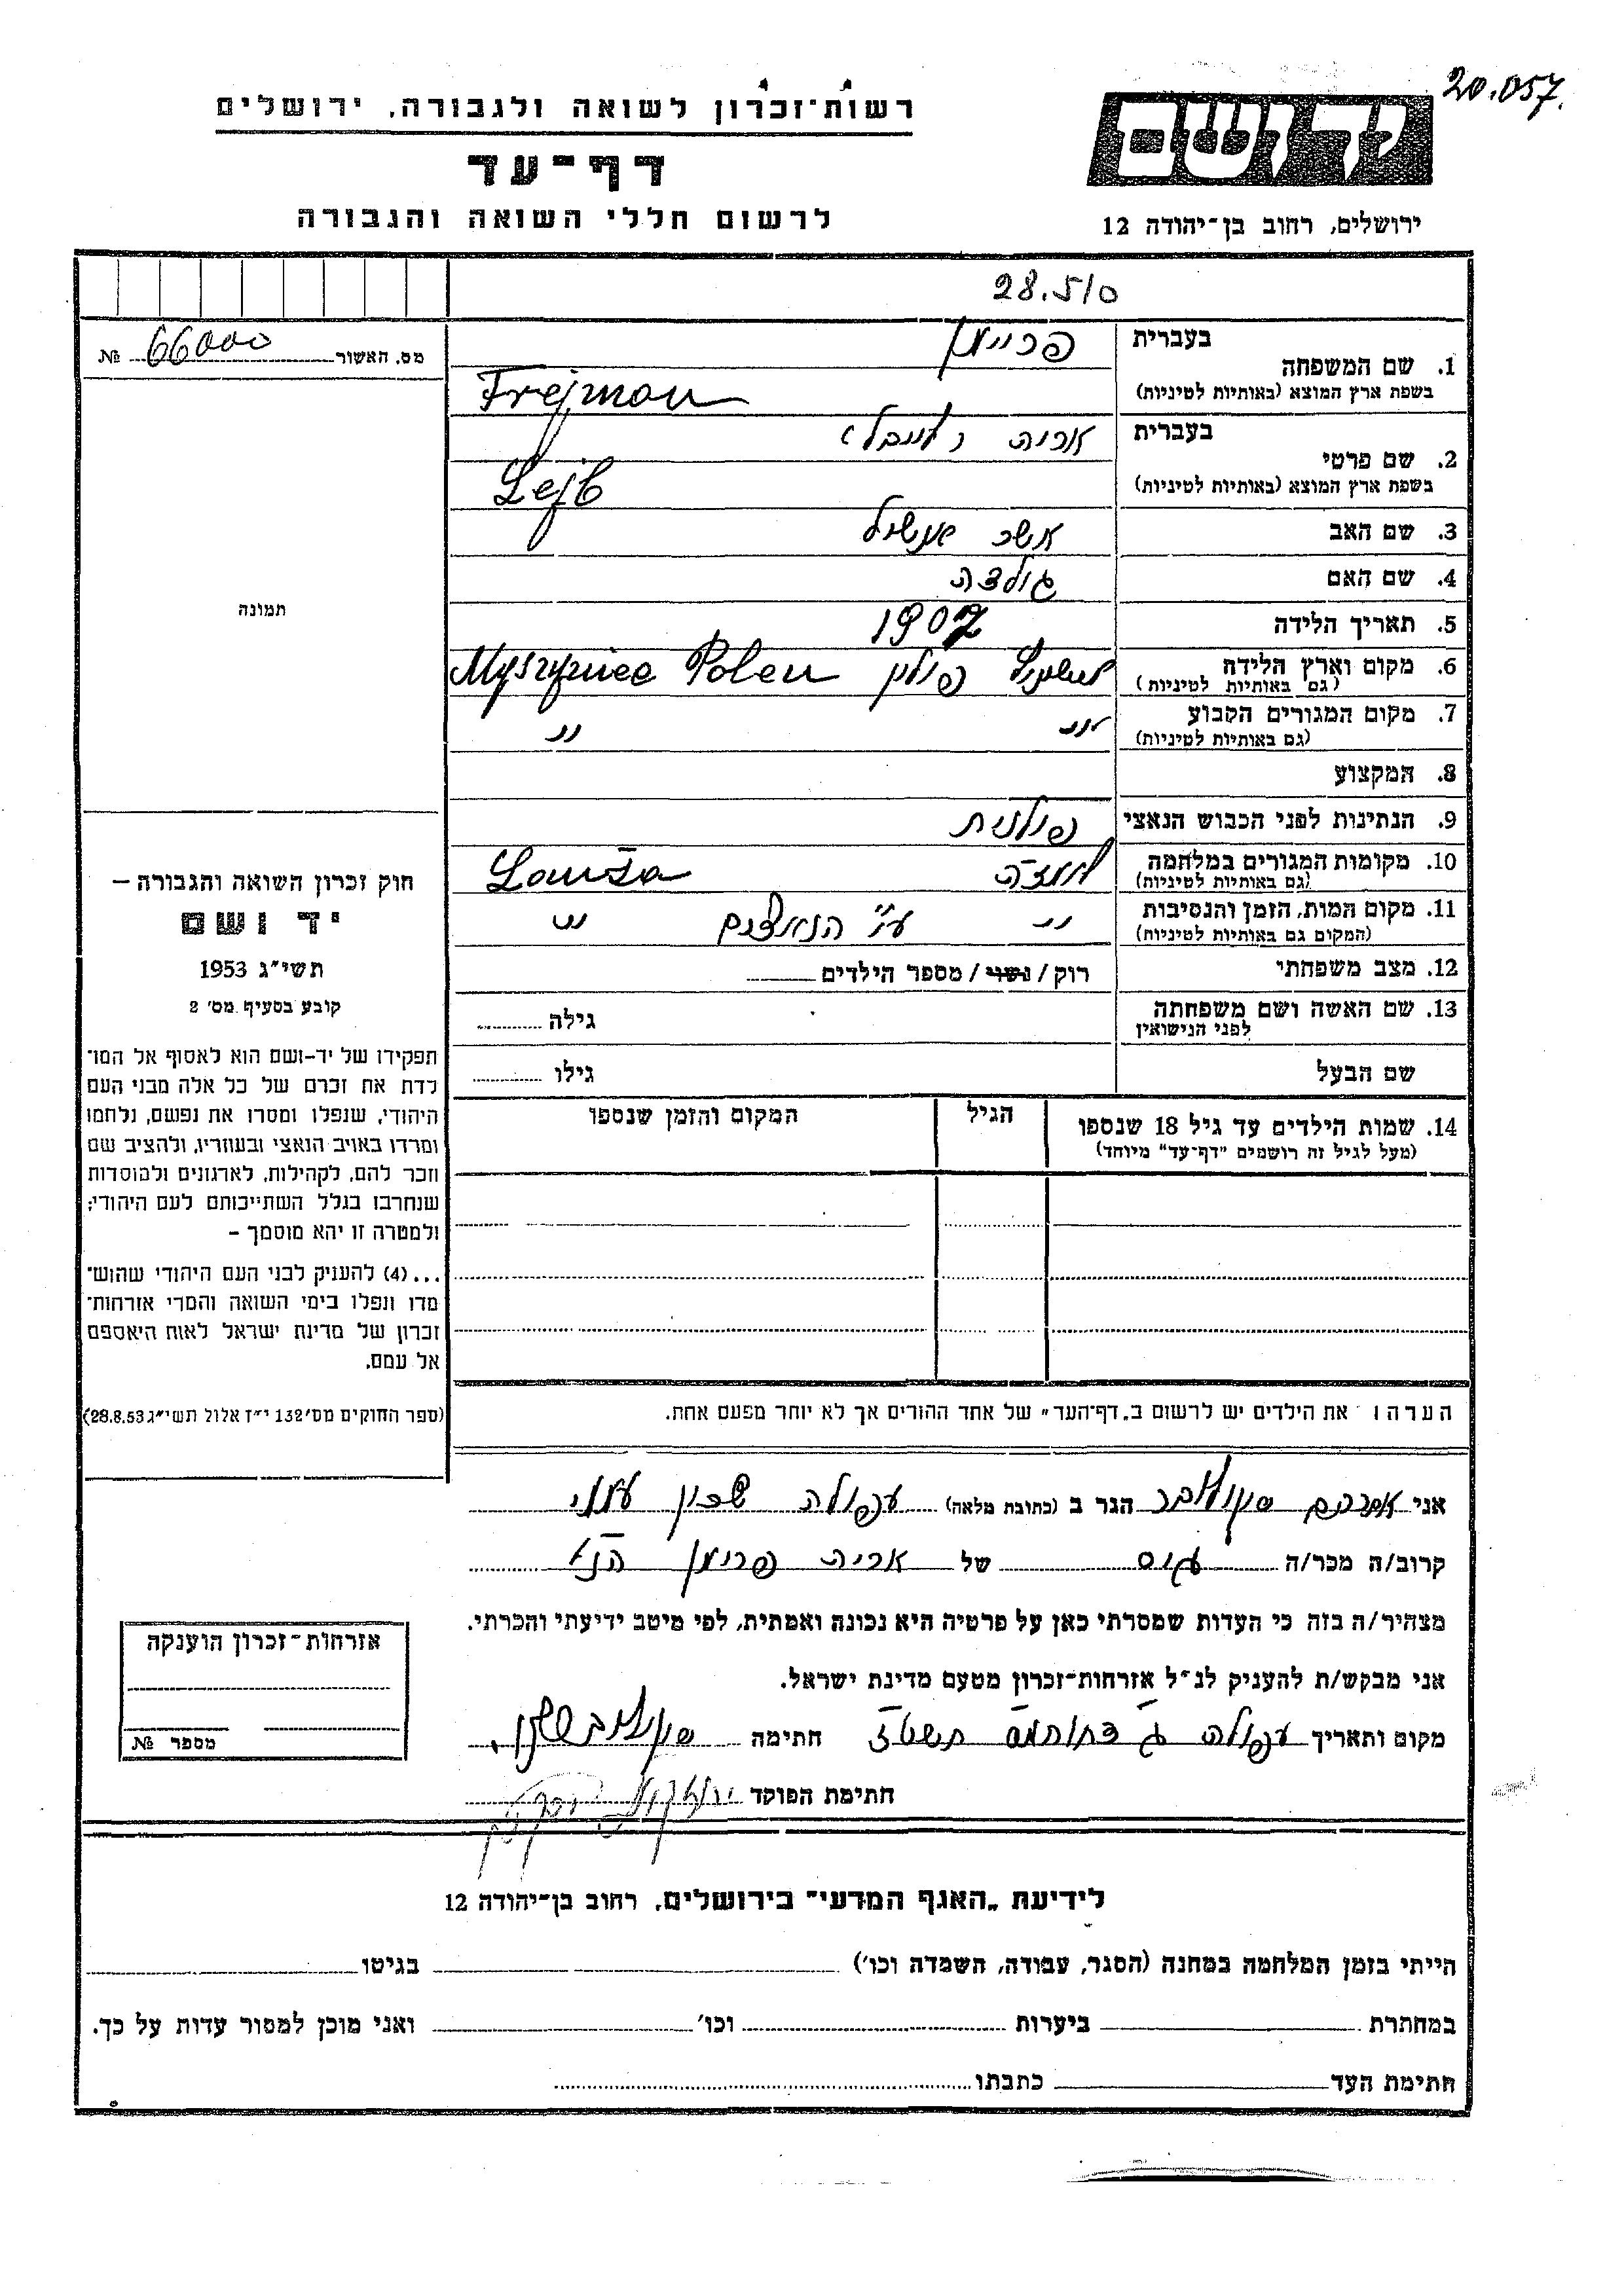 20.057.
רשות־זכרון לשואה ולגבורה, ירושלים
יד ושם
דף־עד
לרשום חללי השואה והגבורה
ירושלים, רחוב בן־יהודה 12
28.510
מס. האשור 66000 №
תמונה
1. שם המשפחה
בעברית פריימן
בשפת ארץ המוצא (באותיות לטיניות) Frejman
2. שם פרטי
בעברית אריה (לייבל)
בשפת ארץ המוצא (באותיות לטיניות) Lejb
3. שם האב אשר אנשיל
4. שם האם גולדה
5. תאריך הלידה 1907
6. מקום וארץ הלידה
(גם באותיות לטיניות) פולין Myszyniec Polen
7. מקום המגורים הקבוע
(גם באותיות לטיניות) ״ ״
8. המקצוע
9. הנתינות לפני הכבוש הנאצי פולנית
10. מקומות המגורים במלחמה
(גם באותיות לטיניות) לומזה Lomża
11. מקום המות, הזמן והנסיבות
(המקום גם באותיות לטיניות) ״ ע״י הנאצים ״
12. מצב משפחתי רוק / נשוי / מספר הילדים
13. שם האשה ושם משפחתה
לפני הנישואין גילה
שם הבעל גילו
14. שמות הילדים עד גיל 18 שנספו הגיל המקום והזמן שנספו
(מעל לגיל זה רושמים "דף־עד" מיוחד)
הערה: את הילדים יש לרשום ב"דף־העד" של אחד ההורים אך לא יותר מפעם אחת.
חוק זכרון השואה והגבורה –
יד ושם
תשי״ג 1953
קובע בסעיף מס׳ 2
תפקידו של יד-ושם הוא לאסוף אל המו־
לדת את זכרם של כל אלה מבני העם
היהודי, שנפלו ומסרו את נפשם, נלחמו
ומרדו באויב הנאצי ובעוזריו, ולהציב שם
וזכר להם, לקהילות, לארגונים ולמוסדות
שנחרבו בגלל השתייכותם לעם היהודי;
ולמטרה זו יהא מוסמך –
...(4) להעניק לבני העם היהודי שהוש־
מדו ונפלו בימי השואה והמרי אזרחות־
זכרון של מדינת ישראל לאות היאספם
אל עמם.
(ספר החוקים מס׳ 132 י״ז אלול תשי״ג 28.8.53)
אני אברהם הגר ב (כתובת מלאה) עפולה שכון עממי
קרוב/ה מכר/ה גיס של אריה פרימן הנ״ל
מצהיר/ה בזה כי העדות שמסרתי כאן על פרטיה היא נכונה ואמתית, לפי מיטב ידיעתי והכרתי.
אני מבקש/ת להעניק לנ״ל אזרחות־זכרון מטעם מדינת ישראל.
מקום ותאריך עפולה חתימה
חתימת הפוקד
אזרחות־זכרון הוענקה
מספר №
לידיעת „האגף המדעי" בירושלים, רחוב בן־יהודה 12
הייתי בזמן המלחמה במחנה (הסגר, עבודה, השמדה וכו׳) בגיטו
במחתרת ביערות וכו׳ ואני מוכן למסור עדות על כך.
חתימת העד כתבתו